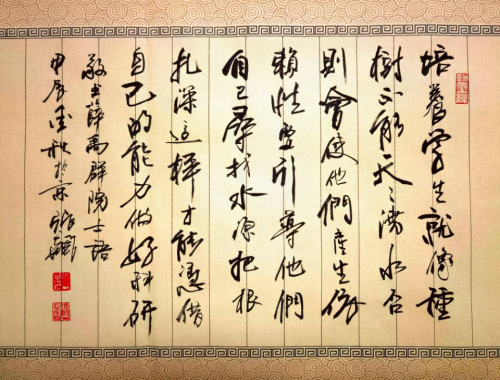 培養學生就像種
樹不能天々澆水否
則會使他們產生依
賴性要引導他們
自己尋找水源把根
扎深這樣才能憑借
自己的能力做好科研
敬書薛禹群院士語
甲午金秋於京張飆